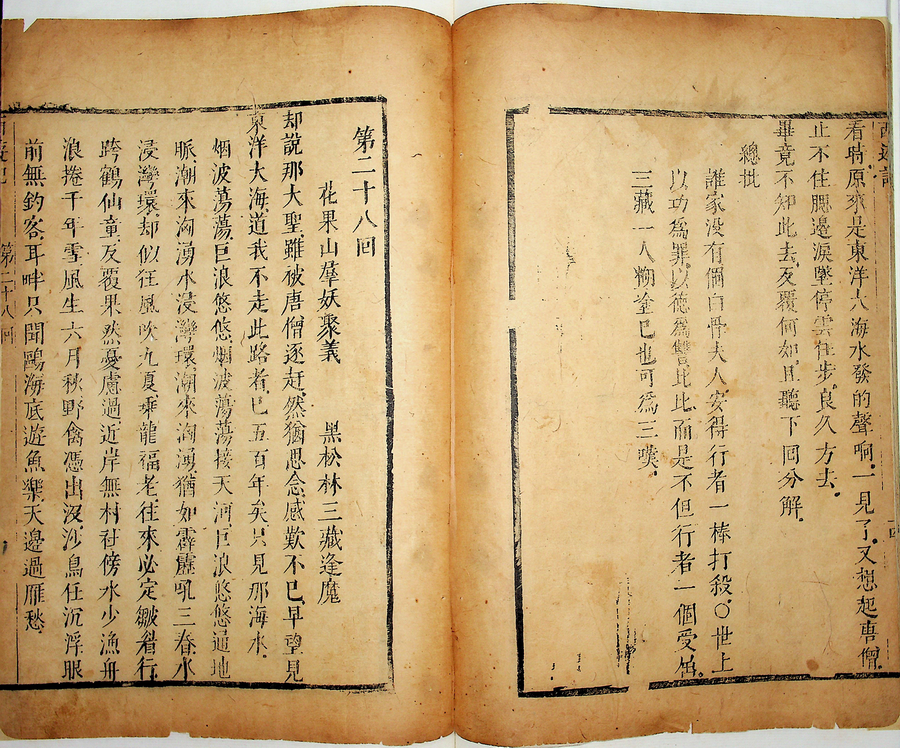 西遊記
看時原來是東洋大海水發的聲响一見了又想起唐僧
止不住腮邊淚墜停雲住步良久方去
畢竟不知此去反覆何如且聽下回分解
總批
誰家沒有個白骨夫人安得行者一棒打殺○世上
以功爲罪以德爲讐比比而是不但行者一個受
三藏一人糊塗已也可爲三嘆
第二十八回
花果山羣妖聚義 黑松林三藏逢魔
却說那大聖雖被唐僧逐赶然猶思念感歎不已早望見
東洋大海道我不走此路者已五百年矣只見那海水
烟波蕩蕩巨浪悠悠烟波蕩蕩接天河巨浪悠悠通地
脈潮來洶湧水浸灣環潮來洶湧猶如霹靂吼三春水
浸灣環却似狂風吹九夏乘龍福老往來必定皺眉行
跨鶴仙童反覆果然憂慮過近岸無村社傍水少漁舟
浪捲千年雪風生六月秋野禽憑出沒沙鳥任沉浮眼
前無釣客耳畔只聞鷗海底遊魚樂天邊過雁愁
西遊記 第二十八回